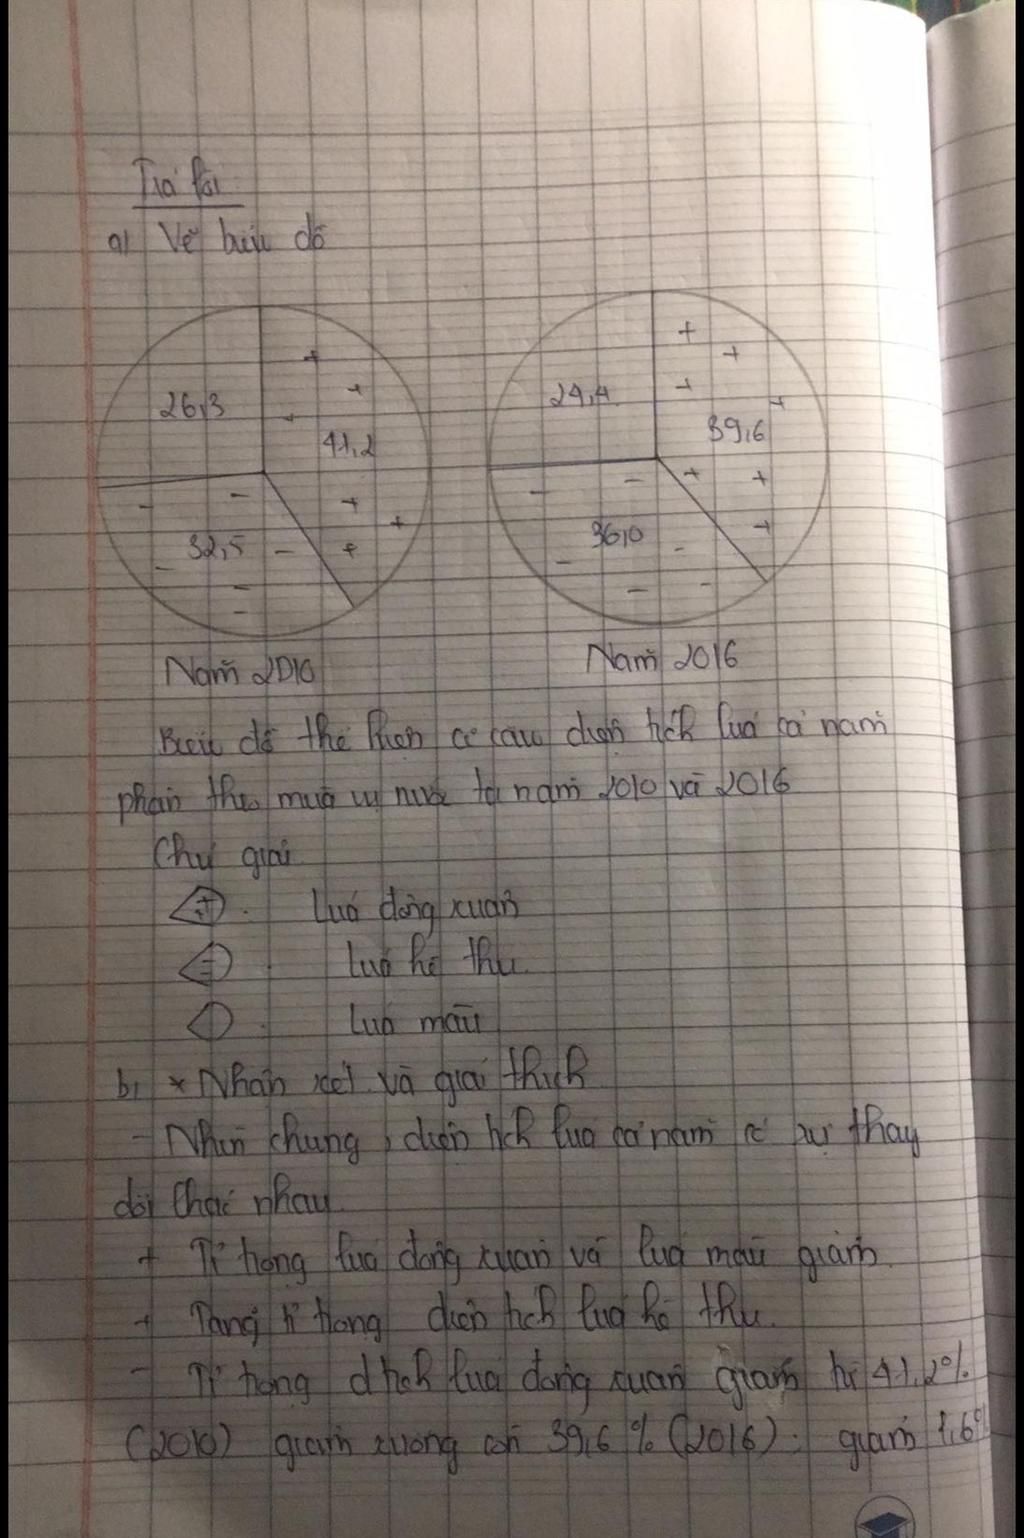 Trả lời
a) Vẽ biểu đồ
26,3
41,2
32,5
24,4
39,6
36,0
Năm 2010
Năm 2016
Biểu đồ thể hiện cơ cấu diện tích lúa cả năm
phân theo mùa vụ nước ta năm 2010 và 2016
Chú giải
+ Lúa đông xuân
- Lúa hè thu
Lúa mùa
b, * Nhận xét và giải thích
- Nhìn chung, diện tích lúa cả năm có sự thay
đổi khác nhau
+ Tỉ trọng lúa đông xuân và lúa mùa giảm.
+ Tăng tỉ trọng diện tích lúa hè thu.
- Tỉ trọng d tích lúa đông xuân giảm từ 41,2%
(2010) giảm xuống còn 39,6 % (2016). giảm 1,6%